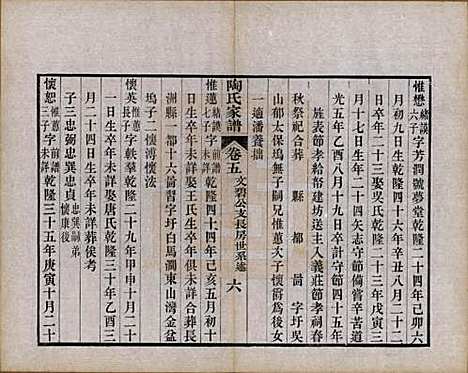 惟懋 緒謨六子 字芳潤號夢堂乾隆二十四年己卯六
月初九日生乾隆四十六年辛丑八月二十二
日卒年二十三娶吳氏乾隆二十三年戊寅三
月十七日生年二十四矢志守節備嘗辛苦道
光五年乙酉八月十九日卒計守節四十五年
旌表節孝給帑建坊送主入義莊節孝祠春
秋祭祀合葬 縣 都 啚字圩吳
山郁太保塢無子嗣兄惟蕙子懷爵為後女
一適潘養拙
陶氏家譜 卷五 文碧公支長房世系述 六
惟蕙 緒謨七子 字 前譜乾隆四十四年己亥五月初十
日生卒年未詳娶王氏生卒年未詳合葬長
洲縣一都十六啚習字圩白馬澗東山灣金盆
塢子二懷溥懷法
懷英 惟長子 字軼羣乾隆二十九年甲申十月二十
日生卒年未詳娶唐氏乾隆三十年乙酉三
月二十四日生卒年未詳葬俟考
子三忠弼忠巽忠貞 忠巽嗣弟懷康後
懷恕 惟三子 字 前譜未詳 乾隆三十五年庚寅十月二十